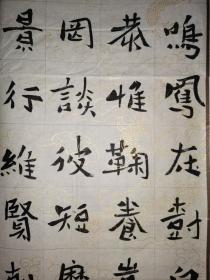 鳴鳳在樹
恭惟鞠養
罔談彼短
景行維賢